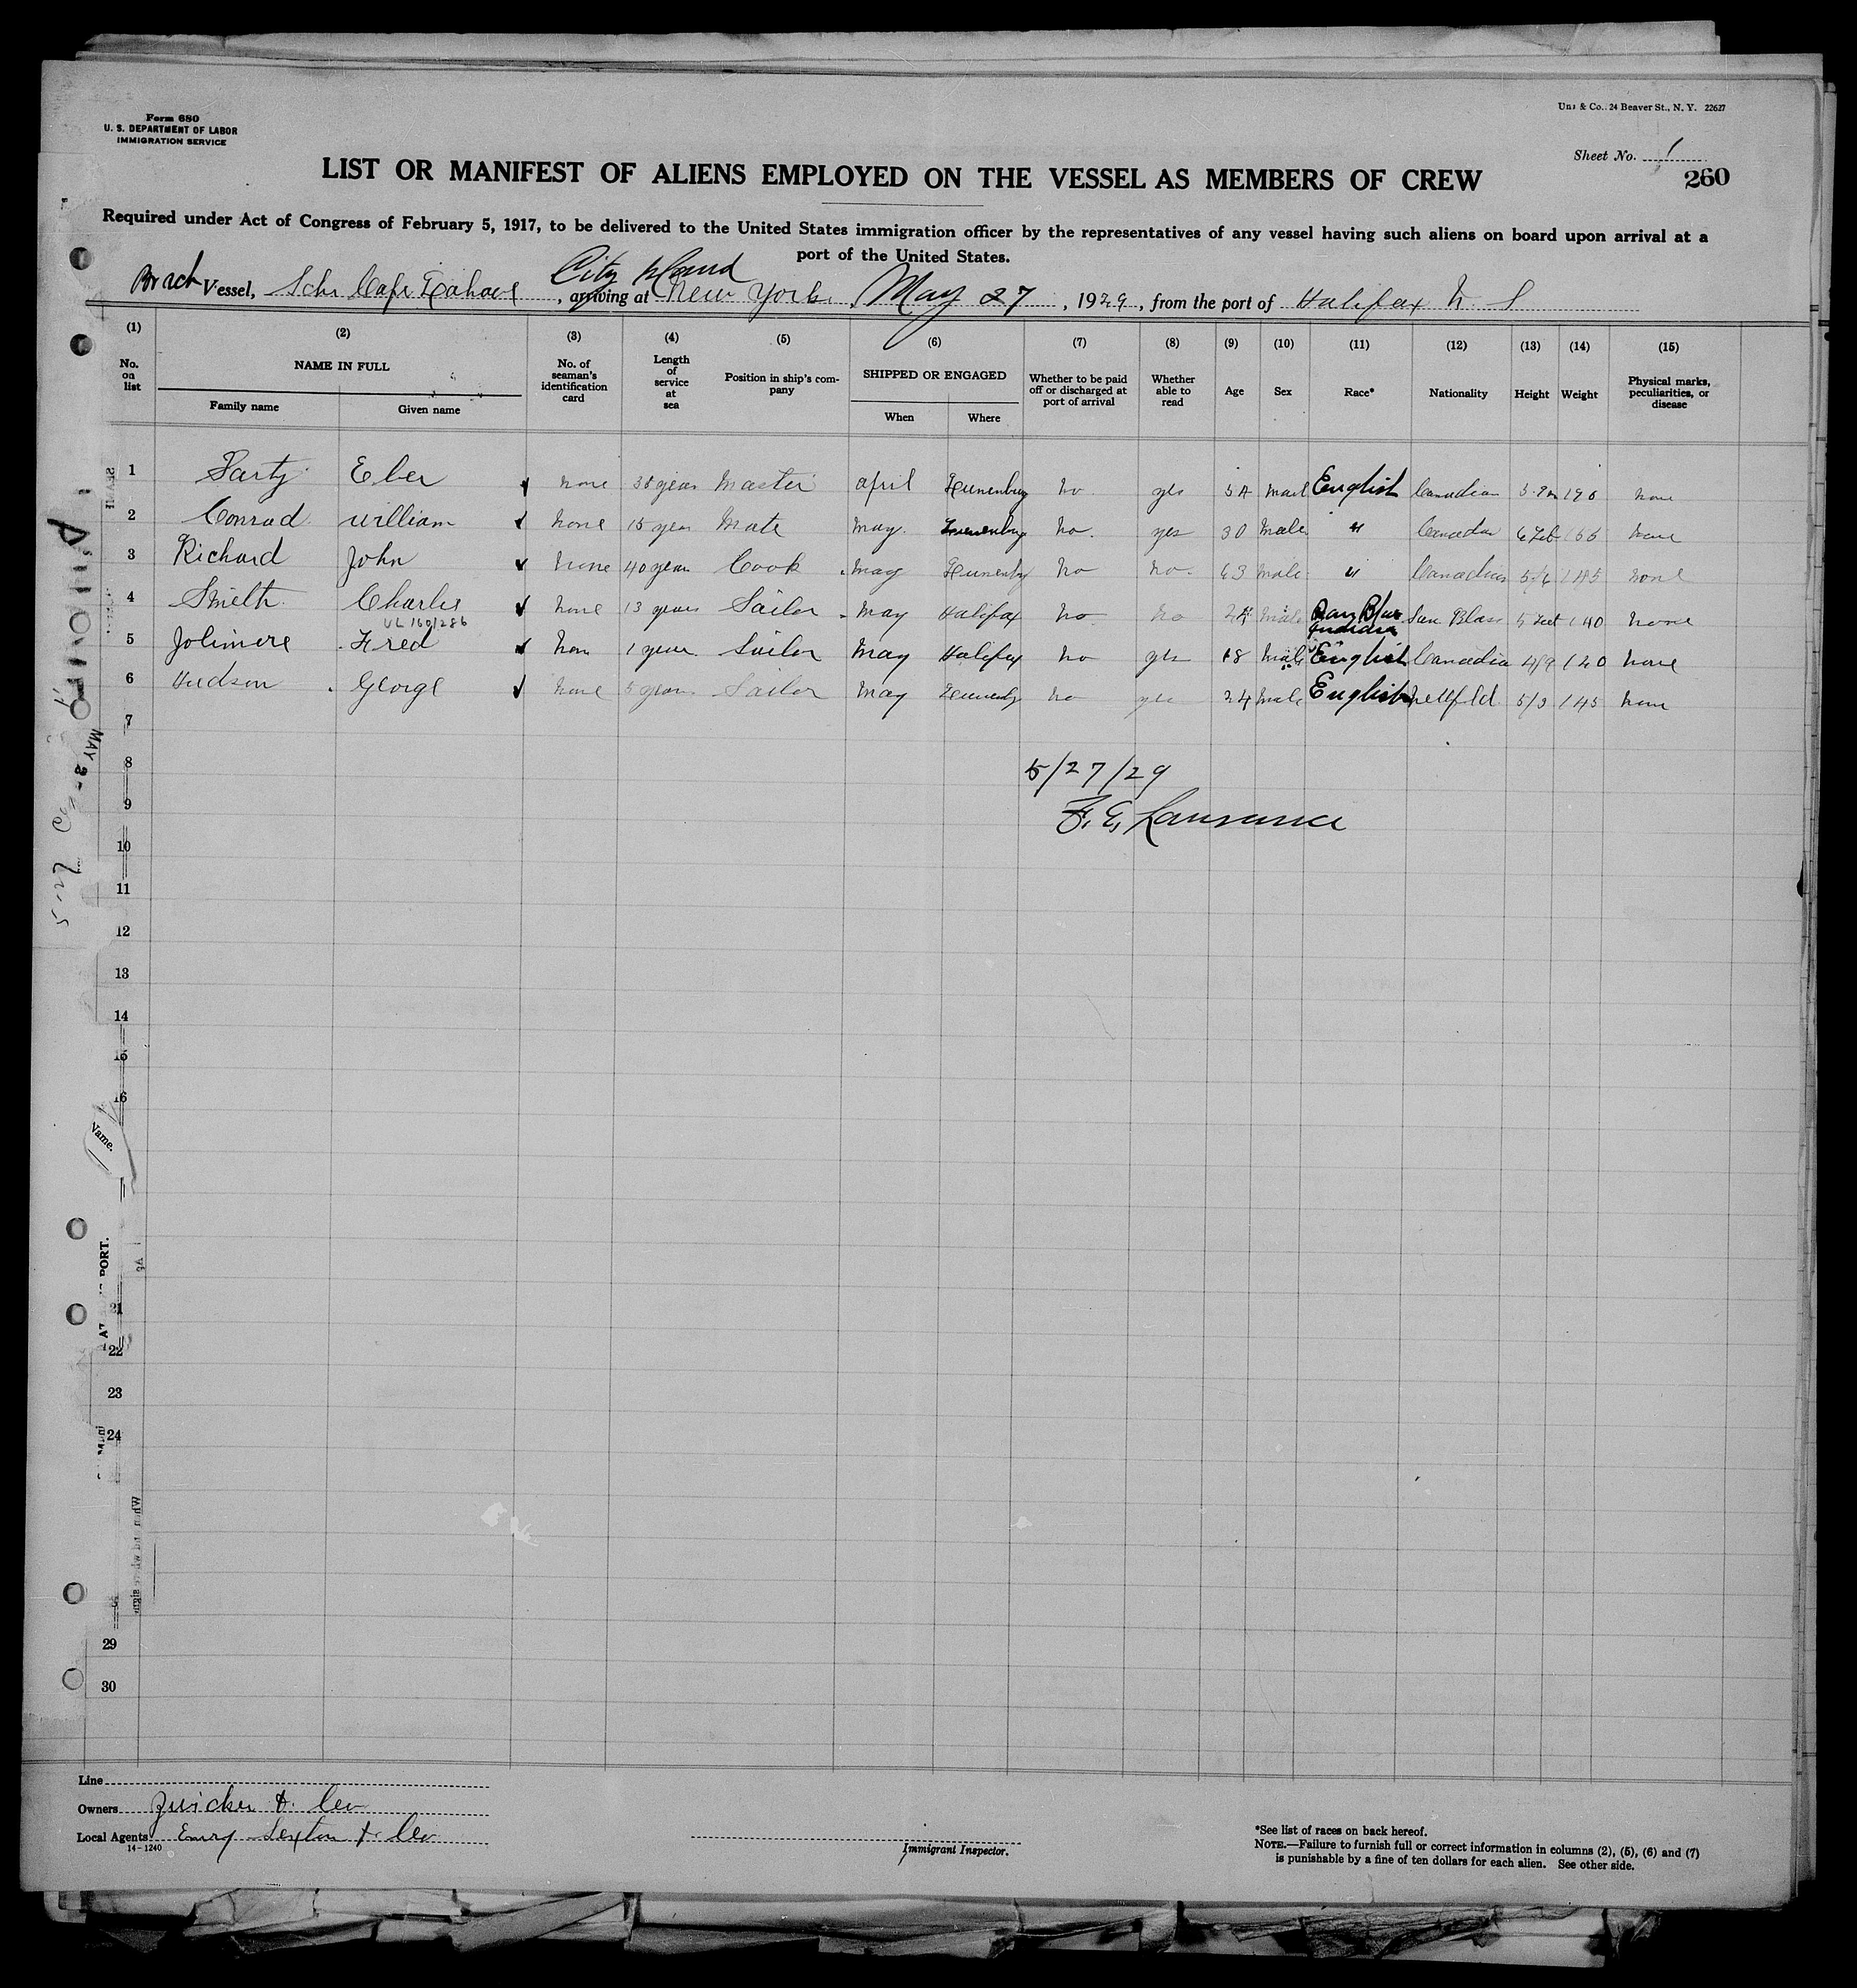 Form 680
U. S. DEPARTMENT OF LABOR
IMMIGRATION SERVICE
& Co., 24 Beaver St., N. Y. 22627
Sheet No. 1
LIST OR MANIFEST OF ALIENS EMPLOYED ON THE VESSEL AS MEMBERS OF CREW
260
Required under Act of Congress of February 5, 1917, to be delivered to the United States immigration officer by the representatives of any vessel having such aliens on board upon arrival at a
port of the United States.
City Island
Vessel, Schr Cape Lahave, arriving at New York, May 27, 1929, from the port of Halifax N. S
(1) (2) (3) (4) (5) (6) (7) (8) (9) (10) (11) (12) (13) (14) (15)
No. on list
NAME IN FULL
Family name Given name
No. of seaman's identification card
Length of service at sea
Position in ship's company
SHIPPED OR ENGAGED
When Where
Whether to be paid off or discharged at port of arrival
Whether able to read
Age
Sex
Race*
Nationality
Height
Weight
Physical marks, peculiarities, or disease
1 Eber none years Master april Lunenburg no yes male English Canadian none
2 Conrad William none 15 year Mate May Lunenburg no. yes 30 male " Canadian none
3 Richard John none 40 year Cook may Lunenburg no no. 63 male " Canadian 5/6 185 none
4 Smith Charles none 13 years Sailor may Halifax no no 24 male Indian San Blas 5 feet 140 none
VL 160/286
5 Jolimore Fred non 1 year Sailor May Halifax no yes 18 male English Canadian 4/9 120 none
6 Hudson George none 5 years Sailor may Lunenburg no yes 24 male English Newfld 5/3 145 none
7
8
5/27/29
9
F. E. Lawrance
10
11
12
13
14
15
16
Name.
PORT.
21
22
23
24
29
30
Line
Owners Zwicker & Co
Local Agents Sexton & Co
14-1240
Immigrant Inspector.
*See list of races on back hereof.
NOTE.—Failure to furnish full or correct information in columns (2), (5), (6) and (7)
is punishable by a fine of ten dollars for each alien. See other side.